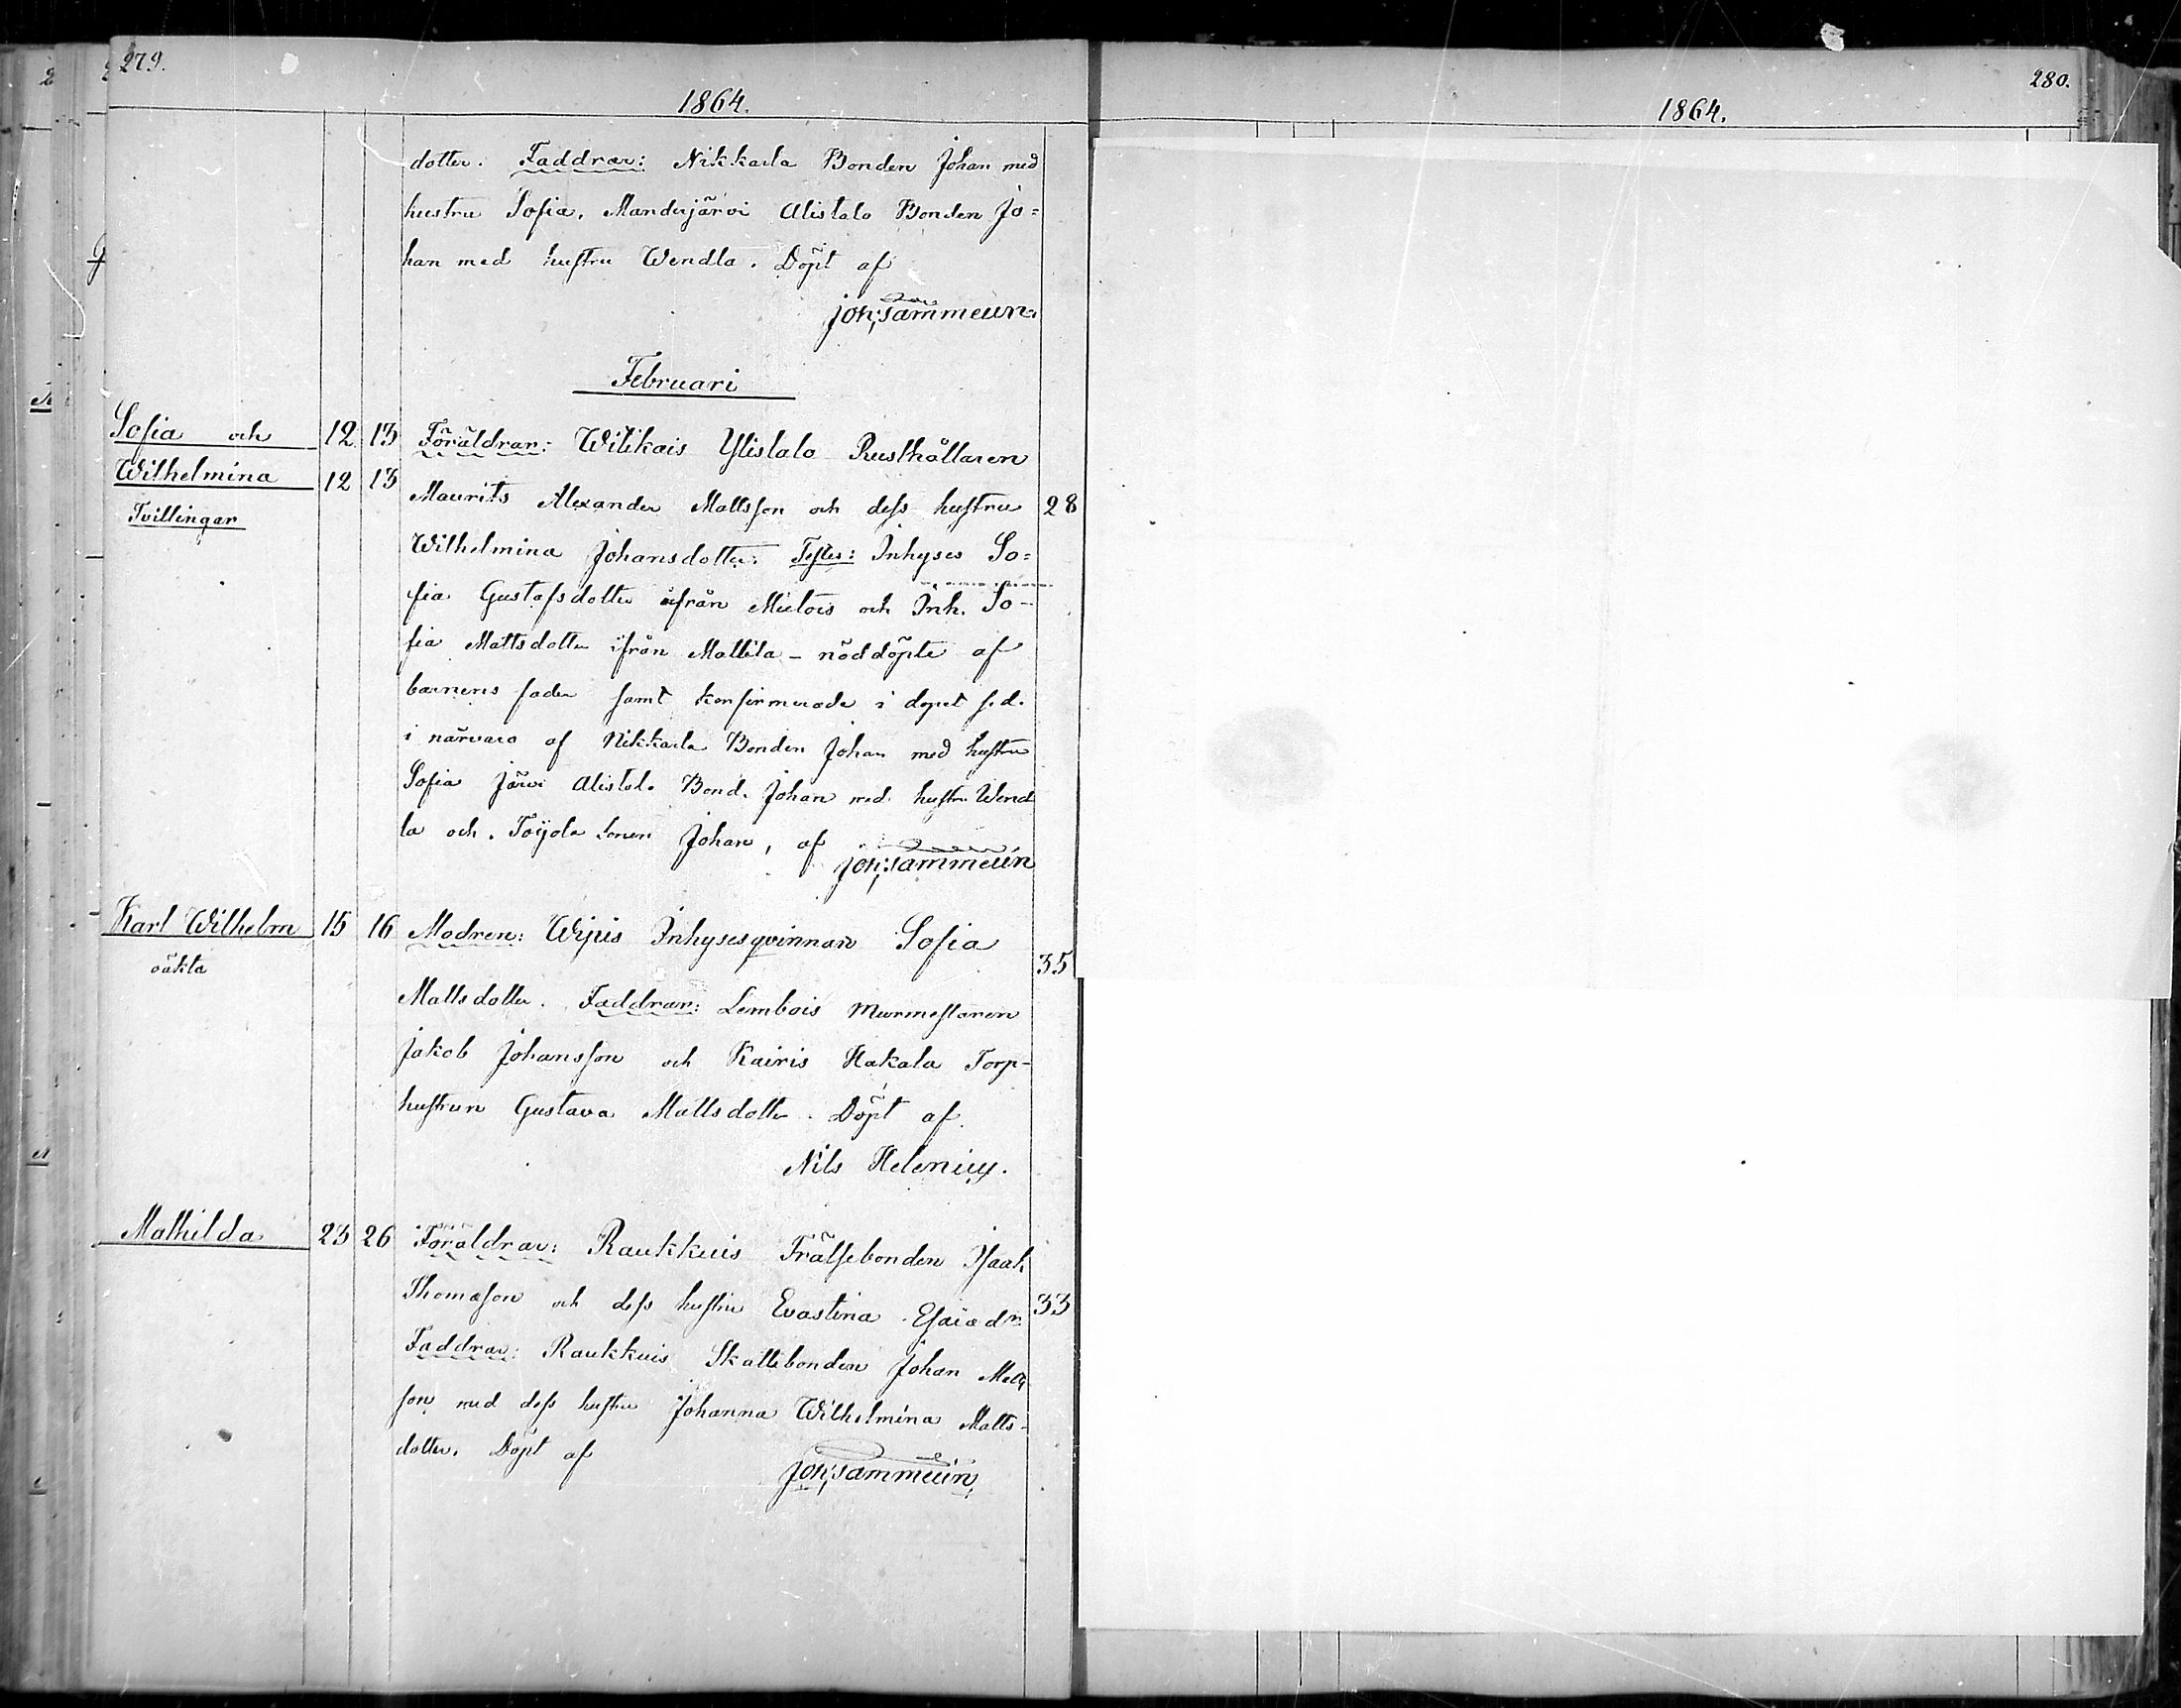 279.
1864.
dotter. Faddrar: Nikkarla Bonden Johan med
hustru Sofia. Manderjärvi Alistalo Bonden Jo=
han med hustru Wendla. Döpt af
Joh; Sammelin.
Februari
Sofia och 12 13 Föräldrar: Wilikais Ylistalo Rusthållaren
Wilhelmina 12 13
Maurits Alexander Mattsson och dess hustru 28
Tvillingar
Wilhelmina Johansdotter. Testes: Inhyses So=
fia Gustafsdotter ifrån Mietois och Inh. So-
fia Mattsdotter ifrån Mattila - nöddöpte af
barnens fader samt konfirmerade i dopet s.d.
i närvaro af Nikkarla Bonden Johan med hustru
Sofia Järvi Alistalo Bond. Johan med hustru Wend
la och Toijola sonen Johan, af
Joh; Sammelin
Karl Wilhelm 15 16 Modren: Wijais Inhysesqvinnan Sofia
oäkta 35
Mattsdotter. Faddrar: Lembois Murmestaren
Jakob Johansson och Kairis Hakala Torp-
hustrun Gustava Mattsdotter. Döpt af
Nils Helenius.
Mathilda 23 26 Föräldrar: Raukkuis Frälsebonden Isaak
Thomasson och dess hustru Evastina Esaiadr 33
Faddrar: Raukkuis Skattebonden Johan Matts
son med dess hustru Johanna Wilhelmina Matts-
dotter. Döpt af
Joh; Sammelin,
280.
1864.